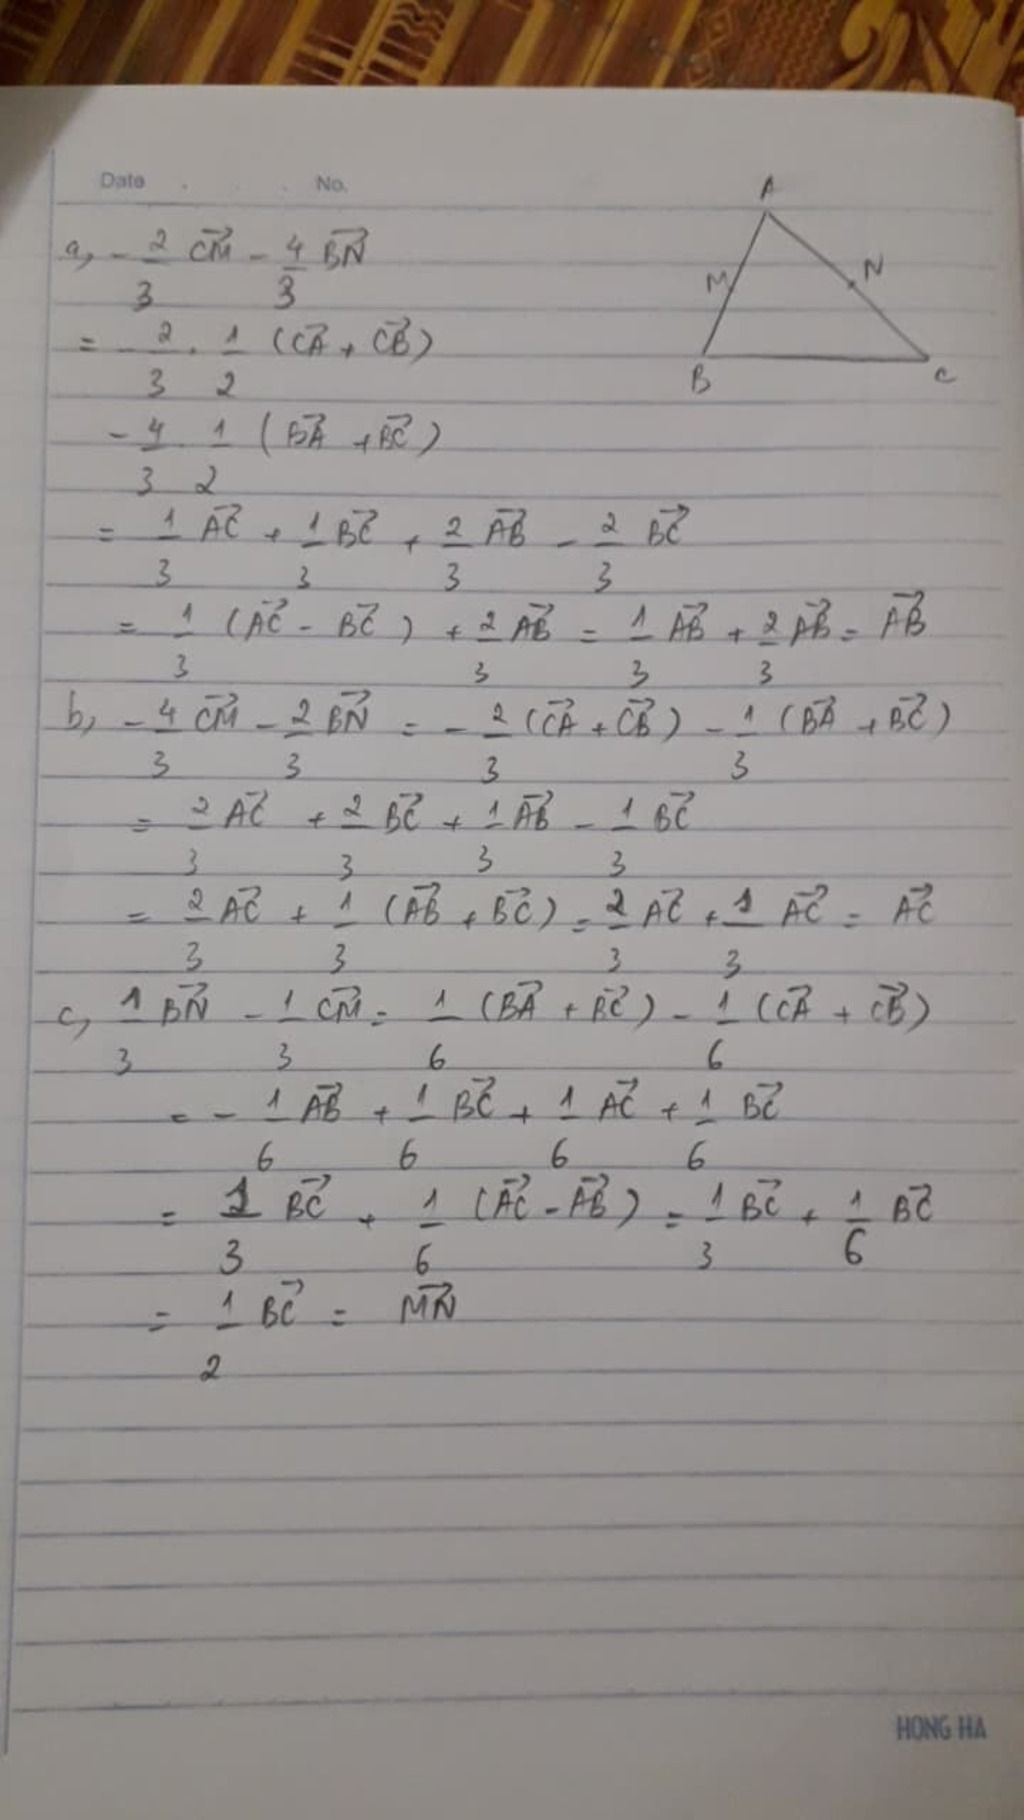 Date . . . No.
A
M
N
B
C
a, - 2/3 CM→ - 4/3 BN→
= - 2/3 . 1/2 (CA→ + CB→)
- 4/3 . 1/2 (BA→ + BC→)
= 1/3 AC→ + 1/3 BC→ + 2/3 AB→ - 2/3 BC→
= 1/3 (AC→ - BC→) + 2/3 AB→ = 1/3 AB→ + 2/3 AB→ = AB→
b, - 4/3 CM→ - 2/3 BN→ = - 2/3 (CA→ + CB→) - 1/3 (BA→ + BC→)
= 2/3 AC→ + 2/3 BC→ + 1/3 AB→ - 1/3 BC→
= 2/3 AC→ + 1/3 (AB→ + BC→) = 2/3 AC→ + 1/3 AC→ = AC→
c, 1/3 BN→ - 1/3 CM→ = 1/6 (BA→ + BC→) - 1/6 (CA→ + CB→)
= - 1/6 AB→ + 1/6 BC→ + 1/6 AC→ + 1/6 BC→
= 1/3 BC→ + 1/6 (AC→ - AB→) = 1/3 BC→ + 1/6 BC→
= 1/2 BC→ = MN→
HONG HA